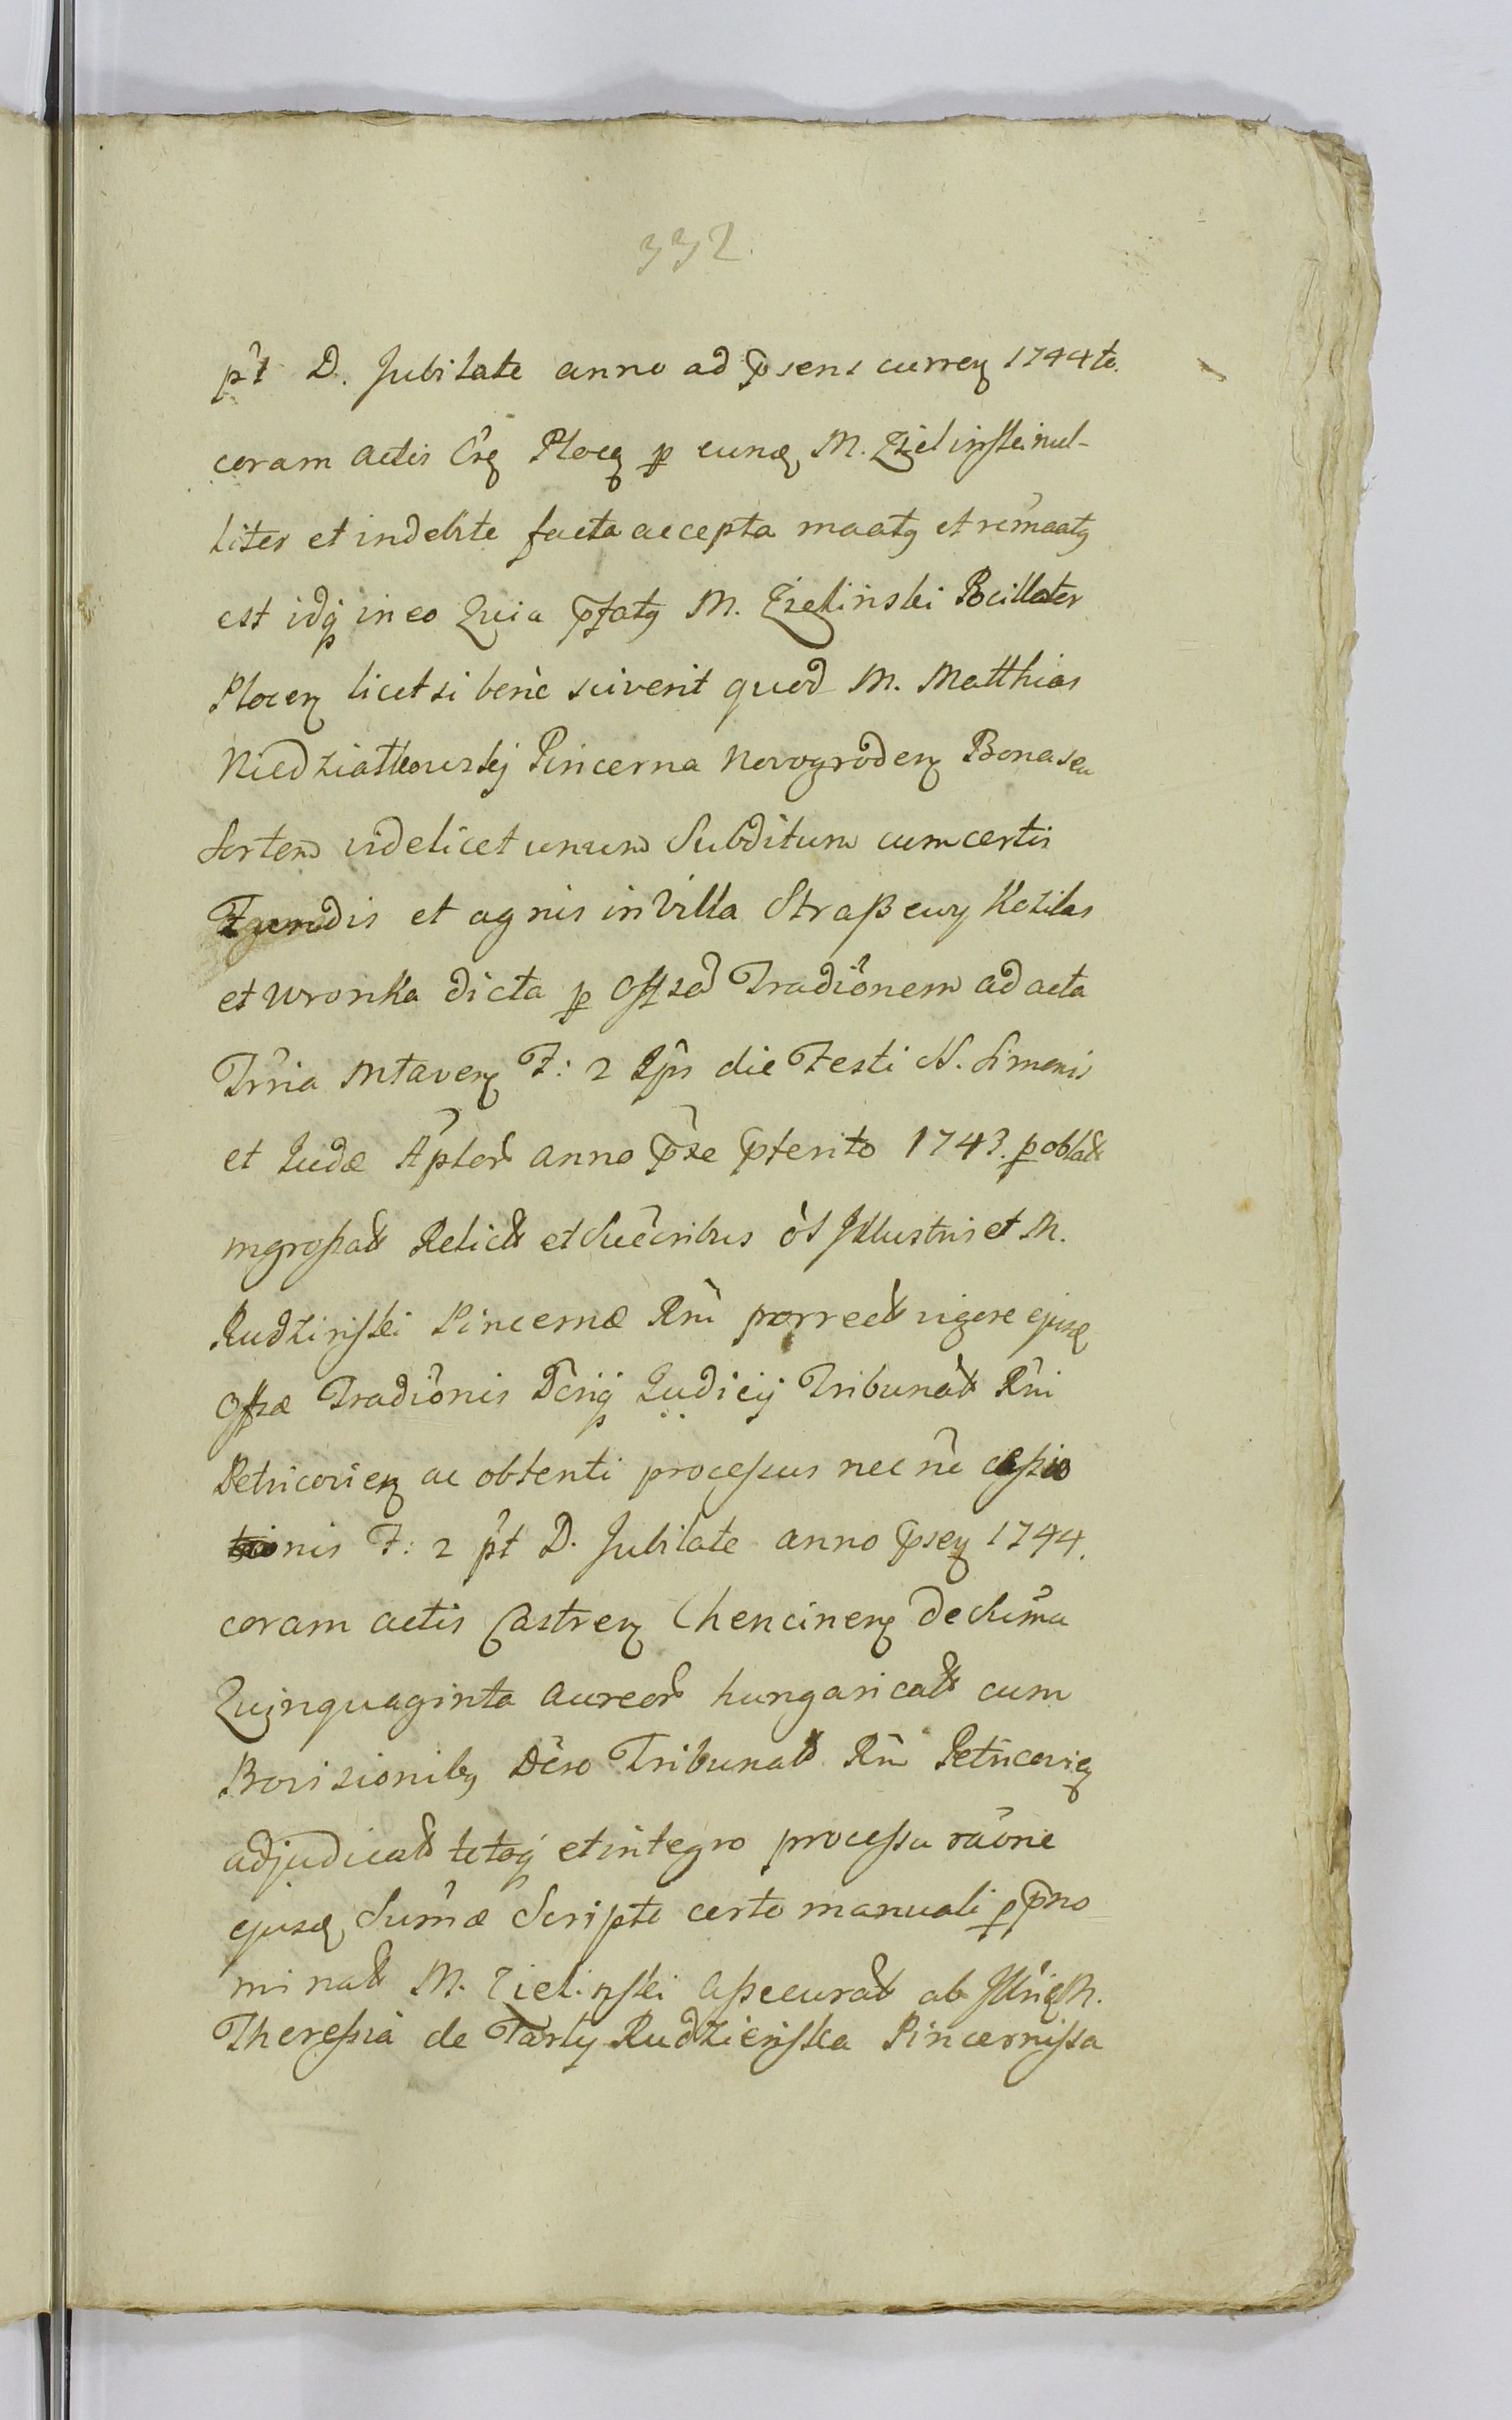 332.
pt D. Jubilate anno ad psens curreñ 1744to.
coram actis Crẽ Ploceñ p eund M. Zielinski nul-
liter et indebite facta accepta maatg et rẽmaatg
est idq in eo Quia pfatg M. Zielinski Pocillater
Ploceñ licet si benè sciverit quod M. Matthias
Niedziałkowskj Pincerna Novogrodeñ Bona seu
Sortem videlicet unum Subditum cum certis
et agris in Villa Straßewy Kozilas
et Wronka dicta p Offsam Traditionem ad acta
Trria Młaveñ F: 2 ipi die Festi S. Simonis
et Judæ Aptor anno pxe pterito 1743. p oblat
ingroßat Relict et Succribus ol Illustris et M.
Rudzinski Pincernæ Rni porrect vigore ejusd
Offsæ Traditionis Dcriq Judicij Tribunat Rni
Petricovieñ ac obtenti proceßus nec nõ ceßio
nis F: 2 pt D. Jubilate anno pseñ 1744.
coram actis Castreñ Chencineñ de Suma
Quinquaginta aureor hungaricat cum
Provisionibg Dcro Tribunat Rni Petricovieñ
adjudicat totoq et integro proceßu raone
ejusd Sumæ Scripto certo manuali p pno
minat M. Zielinski aßecurat ab Illri M.
Thereßia de Tarły Rudzieńska Pincernißa